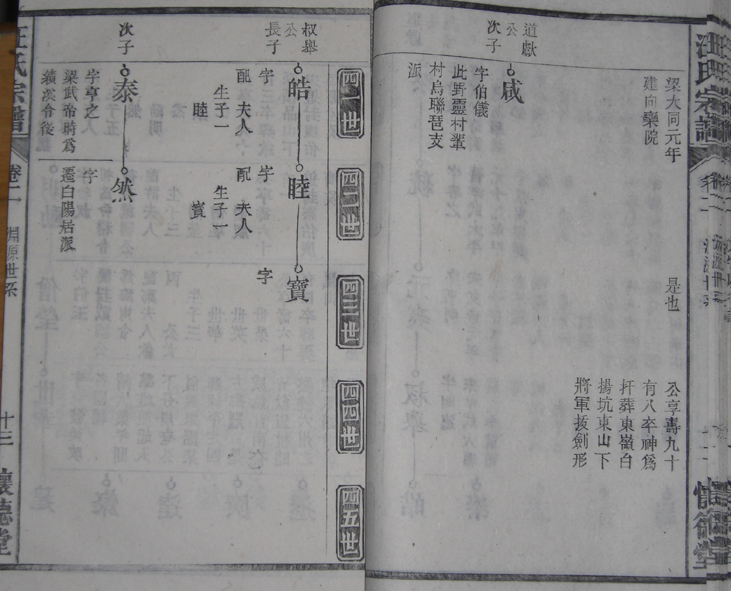 汪氏宗譜
卷二
懷德堂
梁大同元年
建向欒院
是也
公享壽九十
有八卒神爲
扞葬東嶺白
揚坑東山下
將軍拔劍形
道獻
公
次子
咸
字伯儀
此野靈村輋
村烏聯琶支
派
四一世
四二世
四三世
四四世
四五世
叔舉
公
長子
皓
睦
寶
字
字
字
配 夫人
配 夫人
生子一
生子一
睦
賓
次子
泰
然
字亨之
字
梁武帝時爲
遷白陽居派
績溪令後
汪氏宗譜
卷二
淵源世系
十三
懷德堂